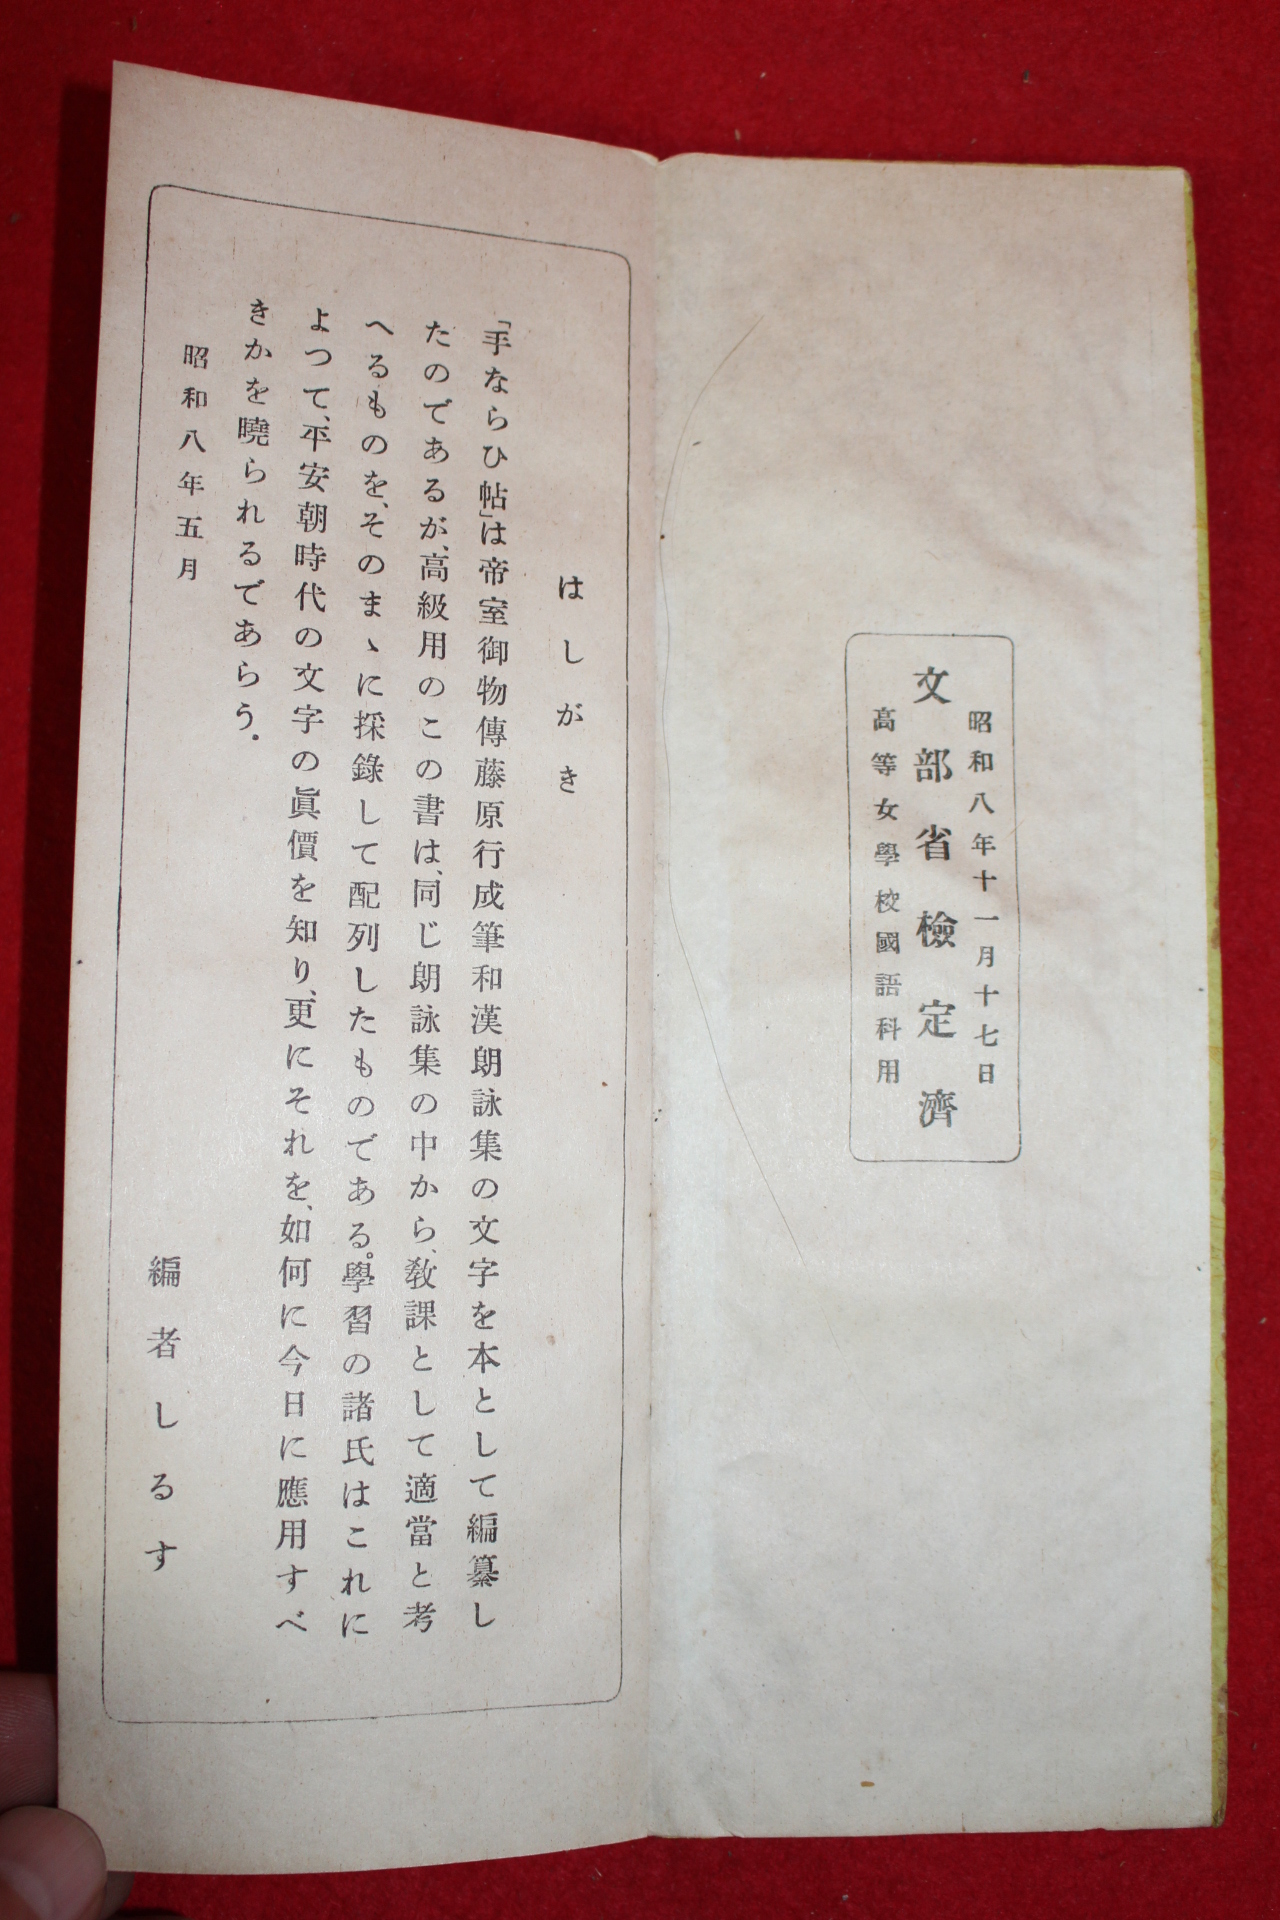 昭和八年十一月十七日
文部省檢定濟
高等女學校國語科用
はしがき
「手ならひ帖」は帝室御物傳藤原行成筆和漢朗詠集の文字を本として編纂し
たのであるが、高級用のこの書は、同じ朗詠集の中から、敎課として適當と考
へるものを、そのまゝに採錄して配列したものである。學習の諸氏はこれに
よつて、平安朝時代の文字の眞價を知り、更にそれを、如何に今日に應用すべ
きかを曉られるであらう。
昭和八年五月
編者しるす